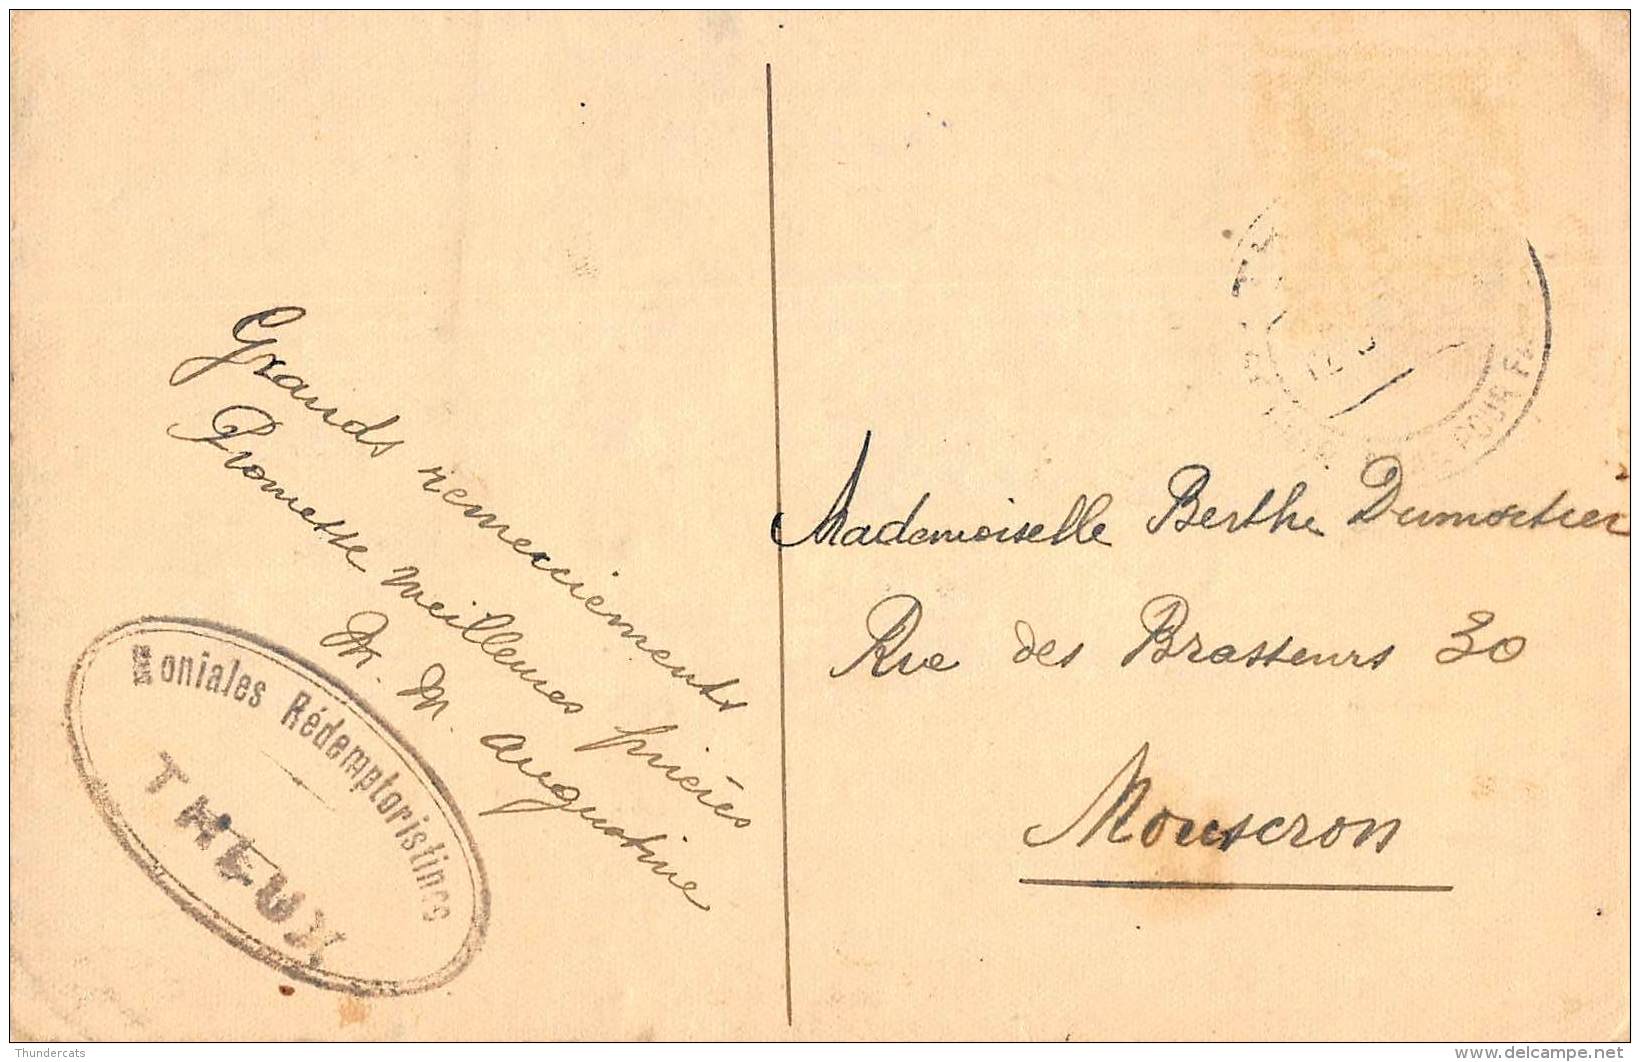 Grands remerciements
Promesse meilleures prières
M. M. Augustine
Moniales Rédemptoristines
THEUX
POUR
Mademoiselle Berthe Dumortier
Rue des Brasseurs 30
Mouscron
Thundercats
delcampe.net